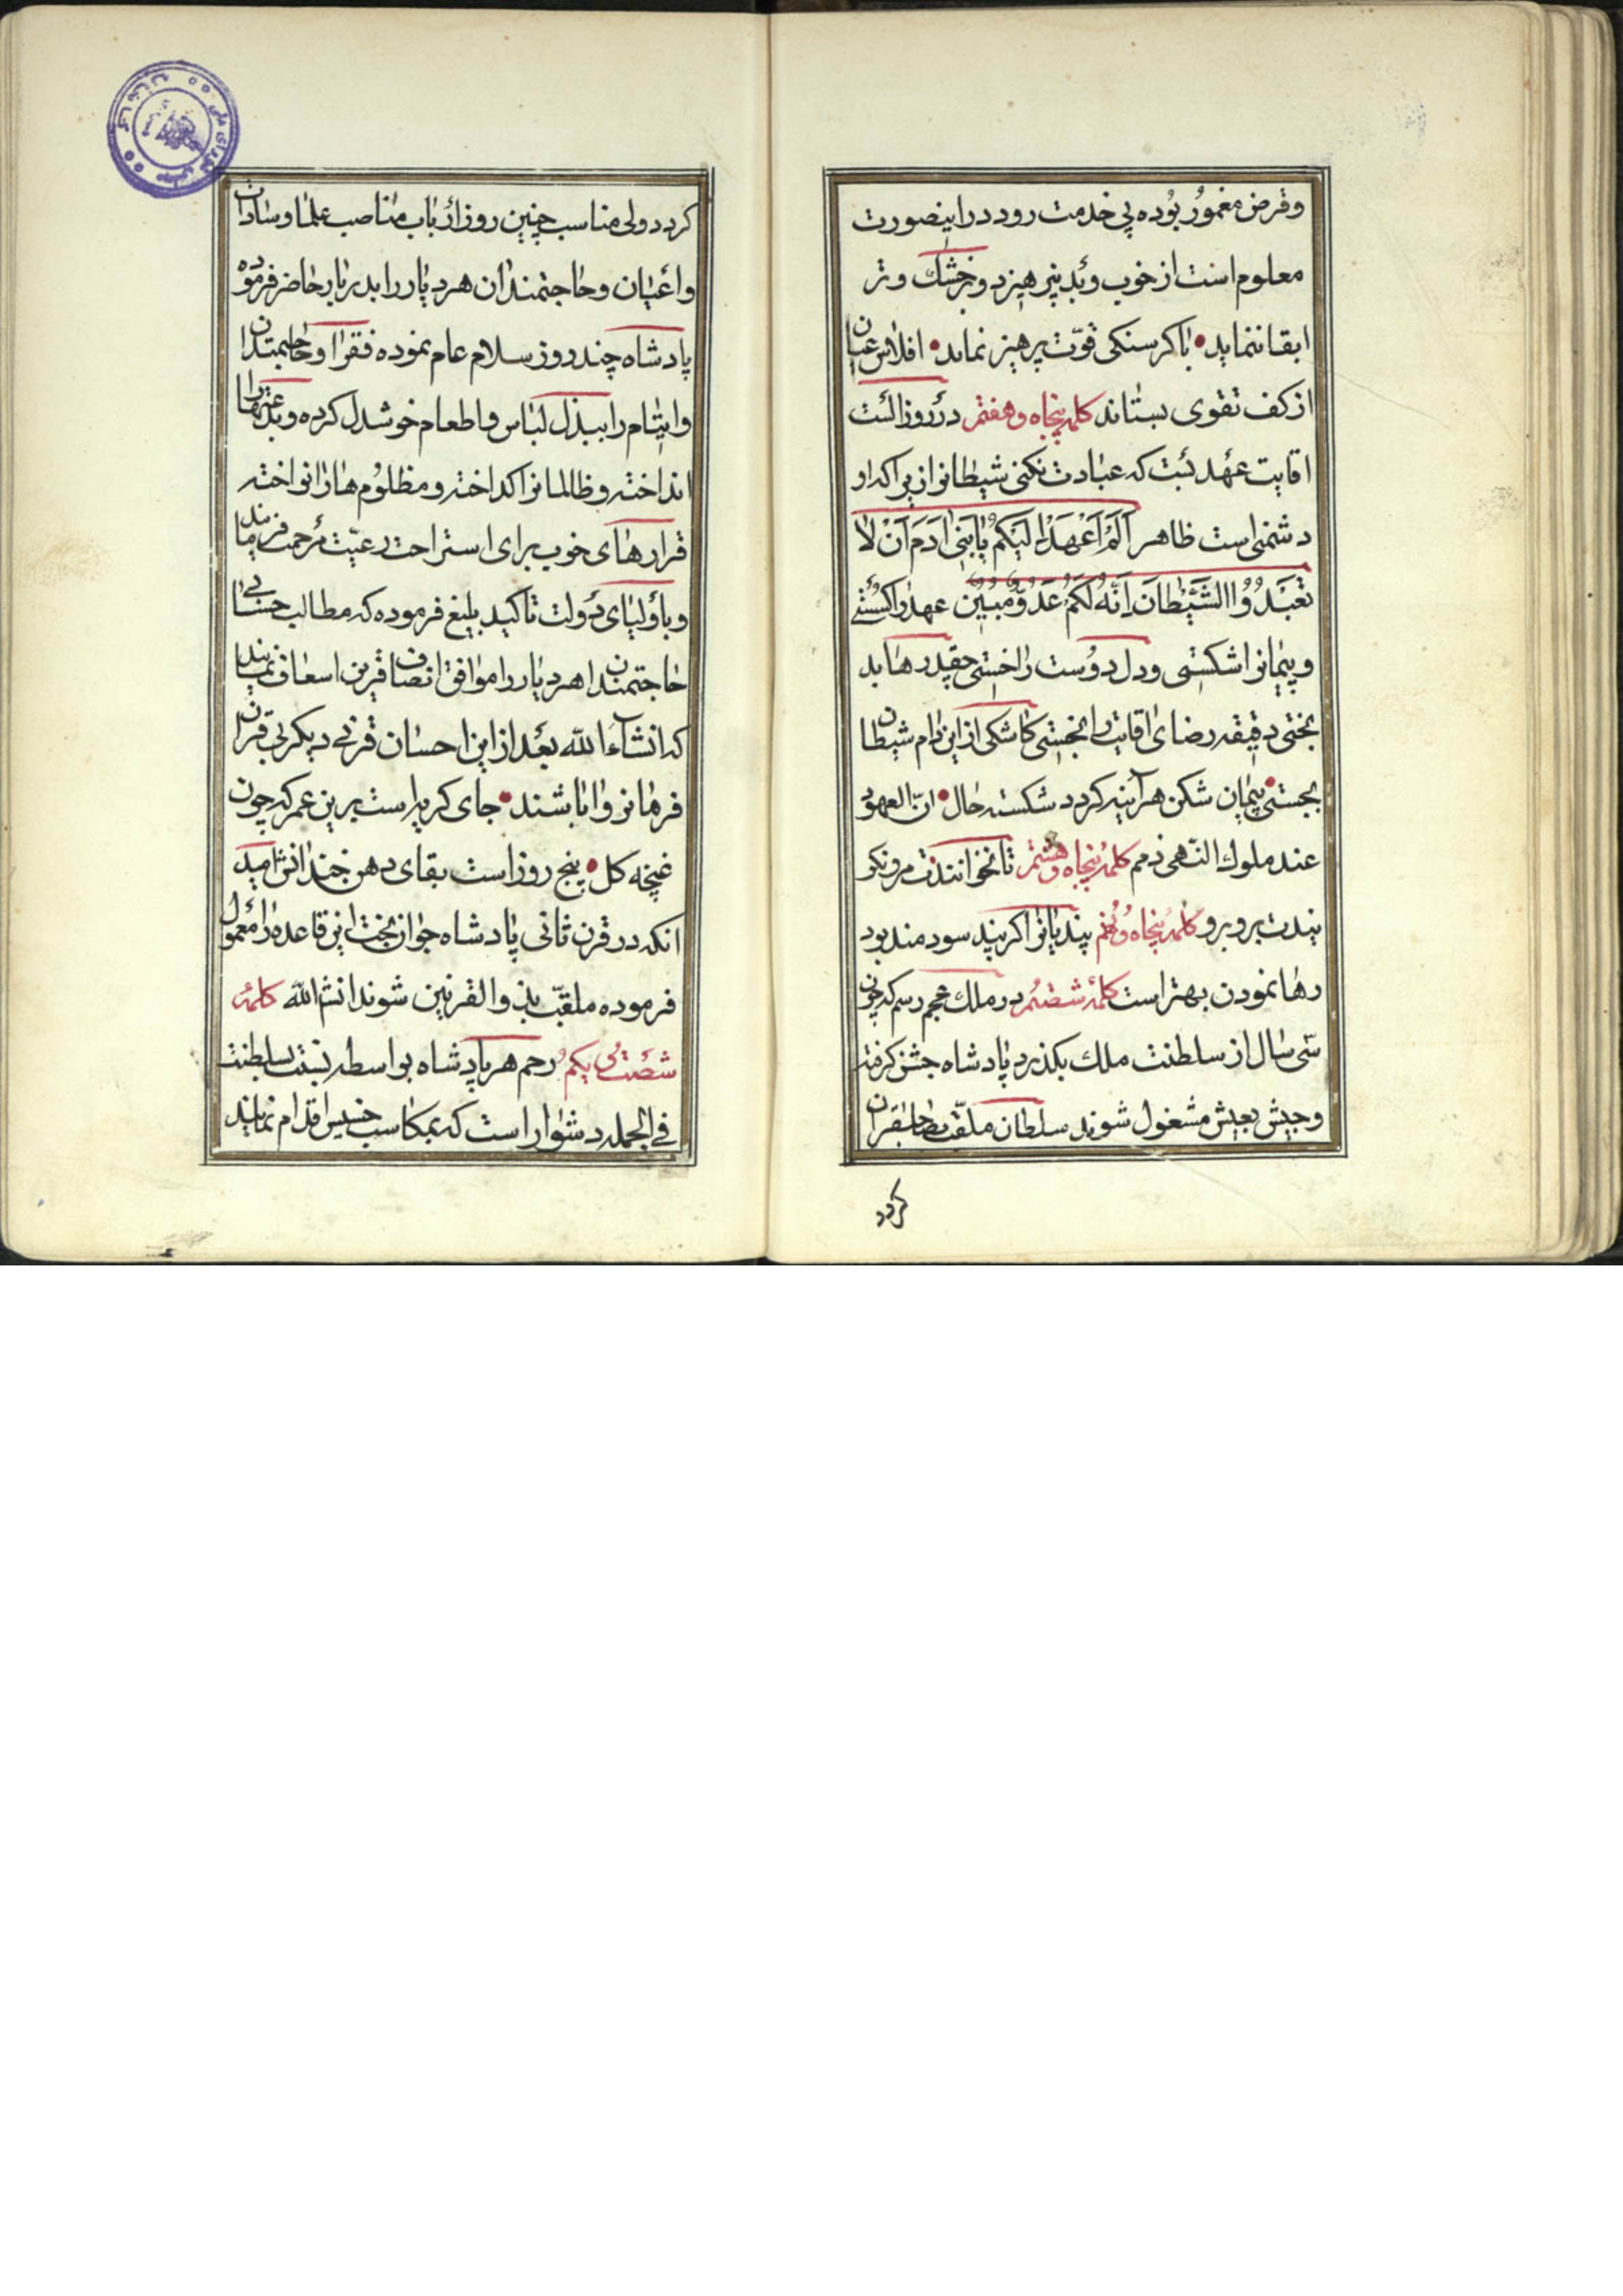 وقرض مغمور بوده پی خدمت رود در اینصورت
معلوم است از خوب و بد نپرهیزد و بر خشك و تر
ابقا ننماید • با کرسنکی قوّت پرهیز نماند • افلاس عنان
از کف تقوی بستاند کلمهٔ پنجاه و هفتم در روز الست
اقایت عهد بست که عبادت نکنی شیطانرا زیرا که او
دشمنی است ظاهر اَلَمْ اَعْهَدْ اِلَیْکُمْ یا بَنی ادَمَ اَنْ لا
تَعْبُدُوا الشَّیْطانَ اِنَّهُ لَکُمْ عَدُوٌّ مُبینٌ عهد را کسستی
و پیمانرا شکستی و دل دوست را خستی چقدر ها بد
بختی دقیقه رضای اقایت را نجستی کاشکی از این دام شیطان
بجستی • پیمان شکن هر آینه کردد شکسته حال • انّ العهود
عند ملوك النّهی ذمم کلمهٔ پنجاه و هشتم تا نخوانندت مرو نکو
بندت برو برو کلمهٔ پنجاه و نهم پند یانرا اکر پند سود مند بود
رها نمودن بهتر است کلمهٔ شصتم در ملك عجم رسم که چون
سی سال از سلطنت ملك بکذرد پادشاه جشن کرفته
و جیش بعیش مشغول شوند سلطان ملقّب بصاحبقران
کردد
کردد ولی مناسب چنین روز ارباب مناصب علما و سادات
و اعیان و حاجتمندان هر دیار را بدربار حاضر فرموده
پادشاه چند روز سلام عام نموده فقرا و حاجتمندان
و ایتام را ببذل لباس و اطعام خوشدل کرده و بدعتها را
انداخته و ظالمانرا کداخته و مظلوم ها را نواخته
قرار های خوب برای استراحت رعیّت مرحمت فرمایند
و باولیای دولت تاکید بلیغ فرموده که مطالب حسابی
حاجتمندان هر دیار را موافق انصاف قرین اسعاف نمایند
که انشاءَ الله بعد از این احسان قرنی دیکر بی قران
فرمانروا باشند • جای کریه است برین عمر که چون
غنچه کل • پنج روز است بقای دهن خندانش امید
انکه در قرن ثانی پادشاه جوان بخت این قاعده را معمول
فرموده ملقّب بذو القرنین شوند انشاالله کلمهٔ
شصت و یکم رحم هر پادشاه بواسطه نسبت سلطنت
فی الجمله دشوار است که بمکاسب خسیس اقدام نمایند